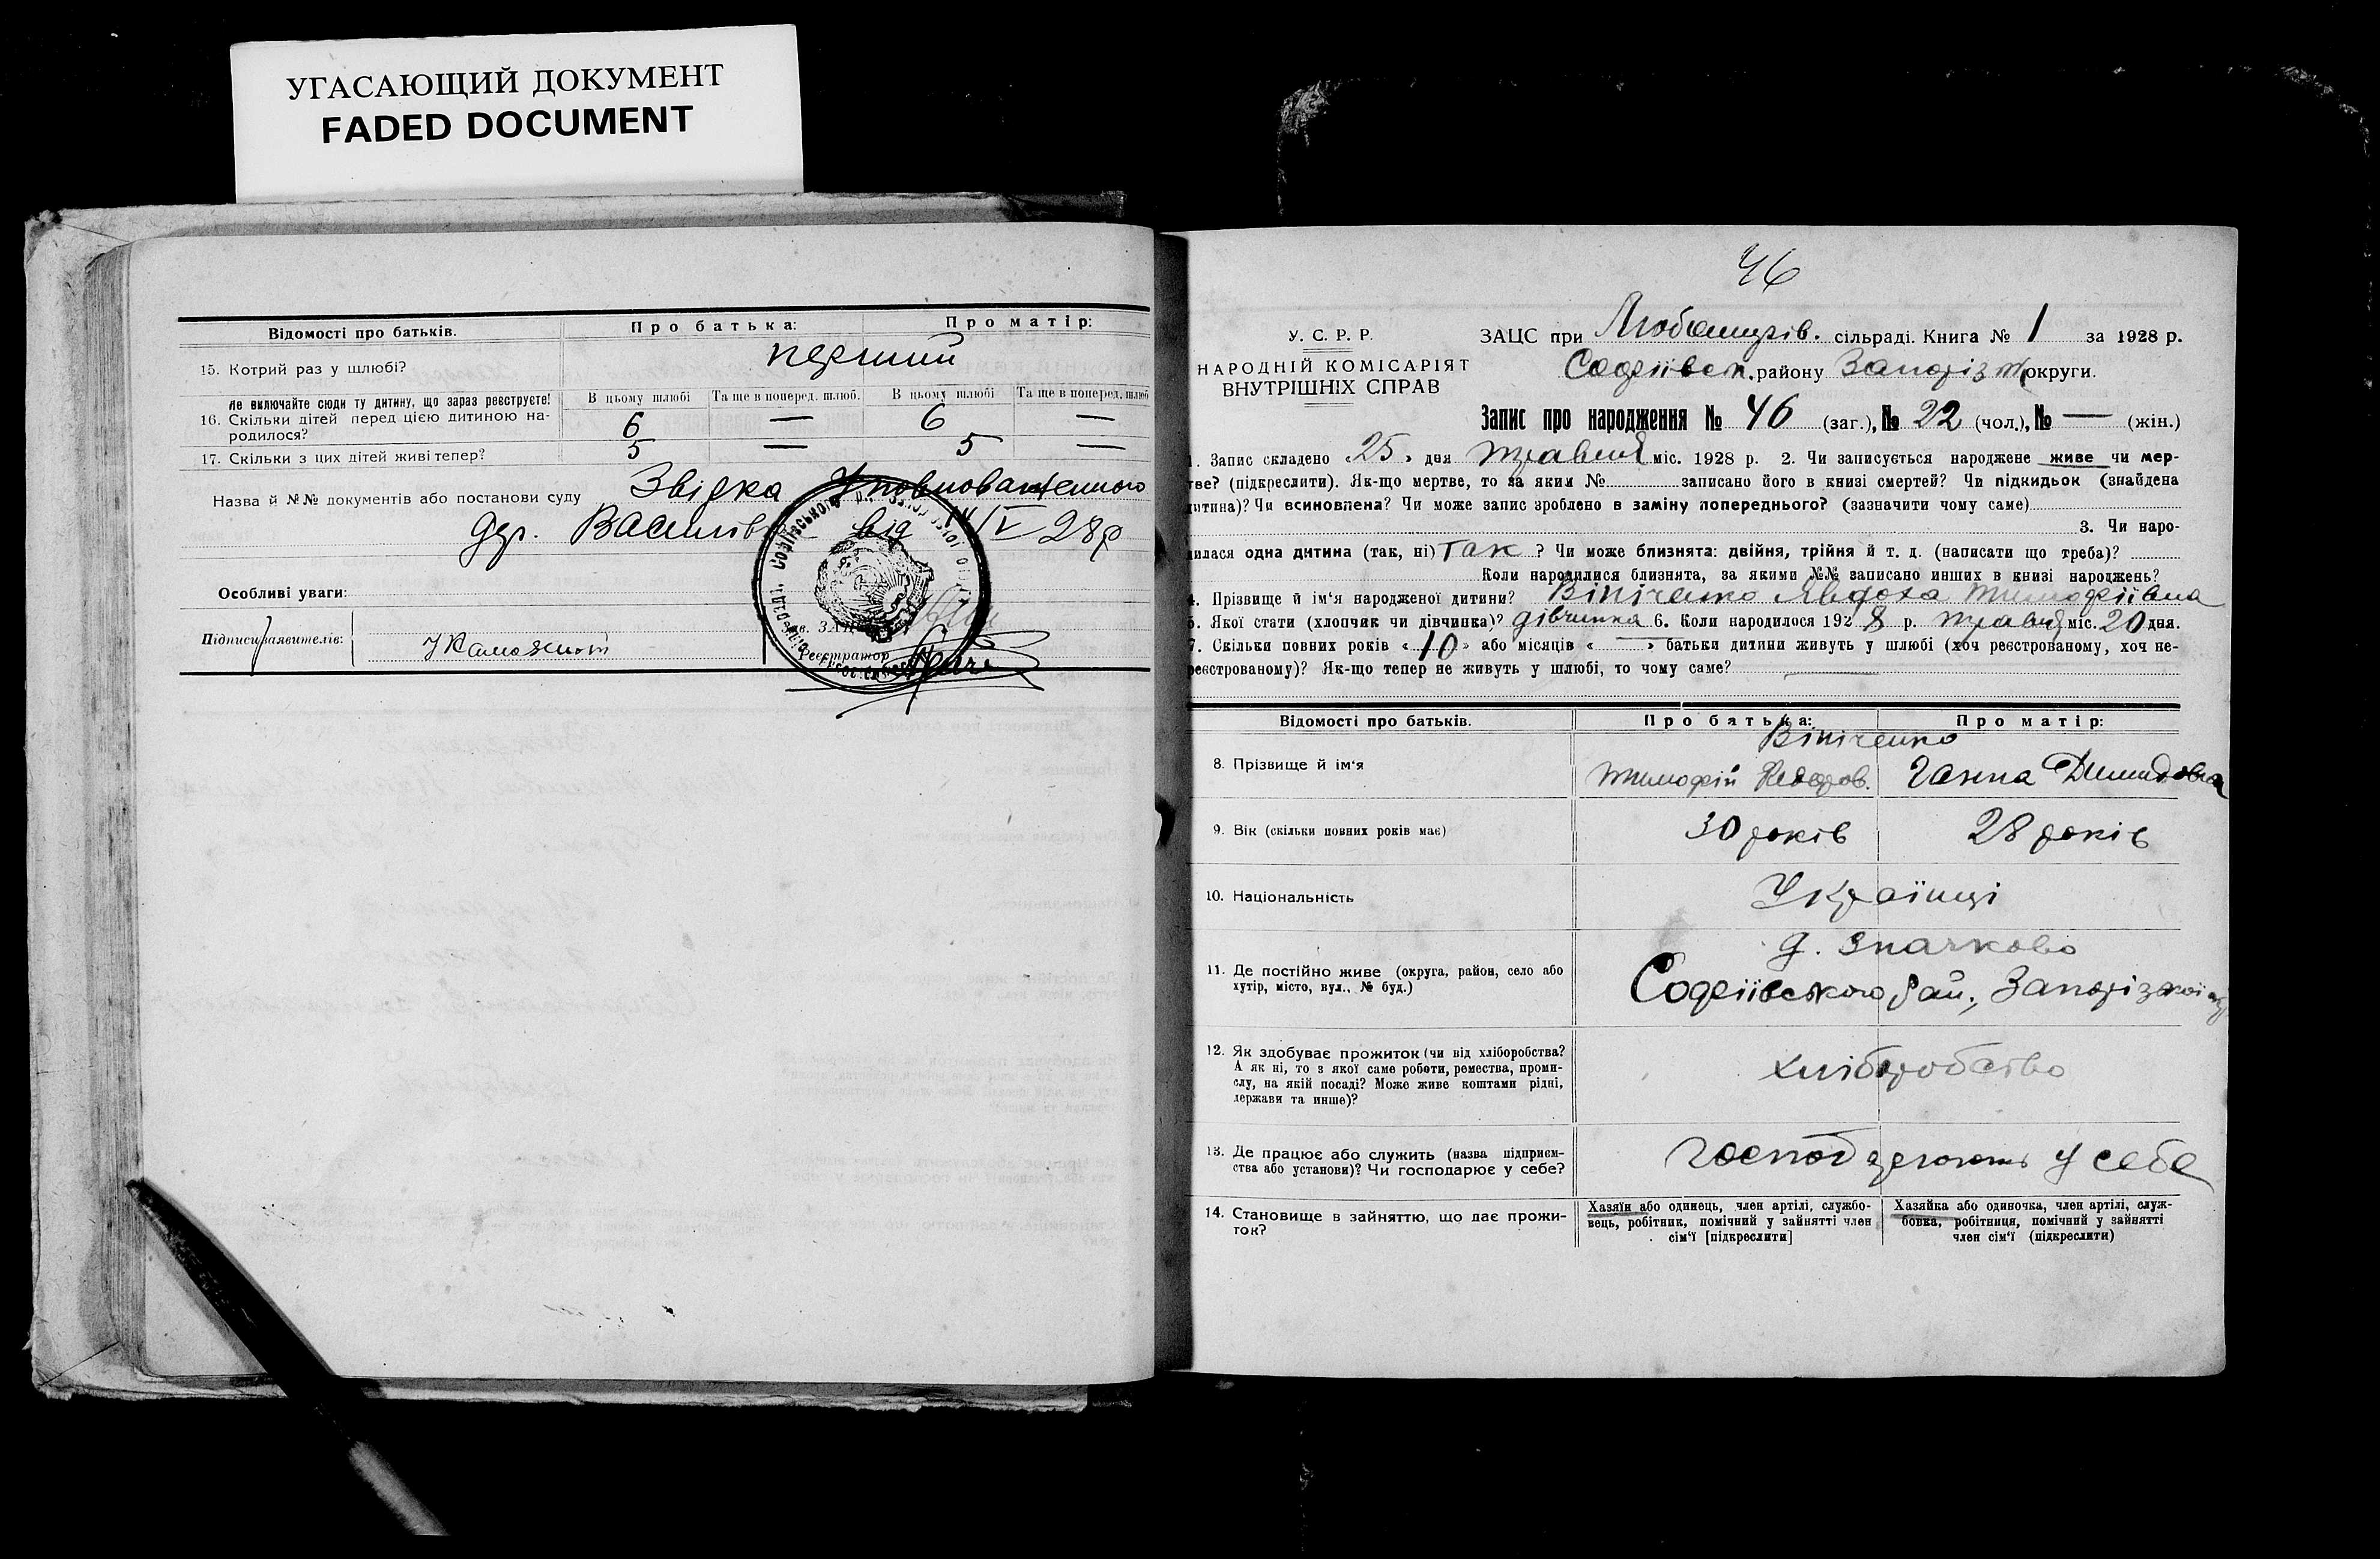 УГАСАЮЩИЙ ДОКУМЕНТ
FADED DOCUMENT
Відомості про батьків.
Про батька:
Про матір:
15. Котрий раз у шлюбі?
перший
Не включайте сюди ту дитину, що зараз реєструєте!
16. Скільки дітей перед цією дитиною на-
родилося?
В цьому шлюбі
Та ще в поперед. шлюб.
В цьому шлюбі
Та ще в поперед. шлюб
6 — 6 —
17. Скільки з цих дітей живі тепер?
5 — 5 —
Назва й №№ документів або постанови суду Звідка Уповноваженного
дер. Василів від IV 28р
Особливі уваги:
Підписи заявителів:
ЗАЦС
Реєстратор
46
У. С. Р. Р.
НАРОДНІЙ КОМІСАРІЯТ
ВНУТРІШНІХ СПРАВ
ЗАЦС при сільраді. Книга № 1 за 1928 р.
Софіївськ. району Запоріз округи.
Запис про народження № 46 (заг.), № 22 (чол.), № — (жін.)
1. Запис складено «25» дня травня міс. 1928 р. 2. Чи записується народжене живе чи мер-
тве? (підкреслити). Як-що мертве, то за яким № записано його в книзі смертей? Чи підкидьок (знайдена
дитина)? Чи всиновлена? Чи може запис зроблено в заміну попереднього? (зазначити чому саме)
3. Чи наро-
дилася одна дитина (так, ні) так ? Чи може близнята: двійня, трійня й т. д. (написати що треба)?
Коли народилися близнята, за якими №№ записано инших в книзі народжень?
4. Прізвище й ім'я народженої дитини? Вініченко Явдоха Тимофіївна
5. Якої стати (хлопчик чи дівчинка)? дівчинка 6. Коли народилося 1928 р. травня міс. 20 дня.
7. Скільки повних років «10» або місяців «—» батьки дитини живуть у шлюбі (хоч реєстрованому, хоч не-
реєстрованому)? Як-що тепер не живуть у шлюбі, то чому саме? —
Відомості про батьків.
Про батька:
Про матір:
8. Прізвище й ім'я
Вініченко
Тимофій Федоров.
Ганна Демидовна
9. Вік (скільки повних років має)
30 років
28 років
10. Національність
Українці
11. Де постійно живе (округа, район, село або
хутір, місто, вул., № буд.)
д. Значково
Софіївського рай., Запорізкої
12. Як здобуває прожиток (чи від хліборобства?
А як ні, то з якої саме роботи, ремества, проми-
слу, на якій посаді? Може живе коштами рідні,
держави та инше)?
хліборобство
13. Де працює або служить (назва підприєм-
ства або установи)? Чи господарює у себе?
господарюють у себе
14. Становище в зайняттю, що дає прожи-
ток?
Хазяїн або одинець, член артілі, службо-
вець, робітник, помічний у зайнятті член
сім'ї [підкреслити]
Хазяйка або одиночка, член артілі, служ-
бовка, робітниця, помічний у зайнятті
член сім'ї (підкреслити)